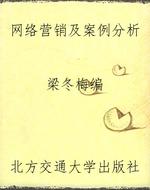 网络营销及案例分析
梁冬梅编
北方交通大学出版社